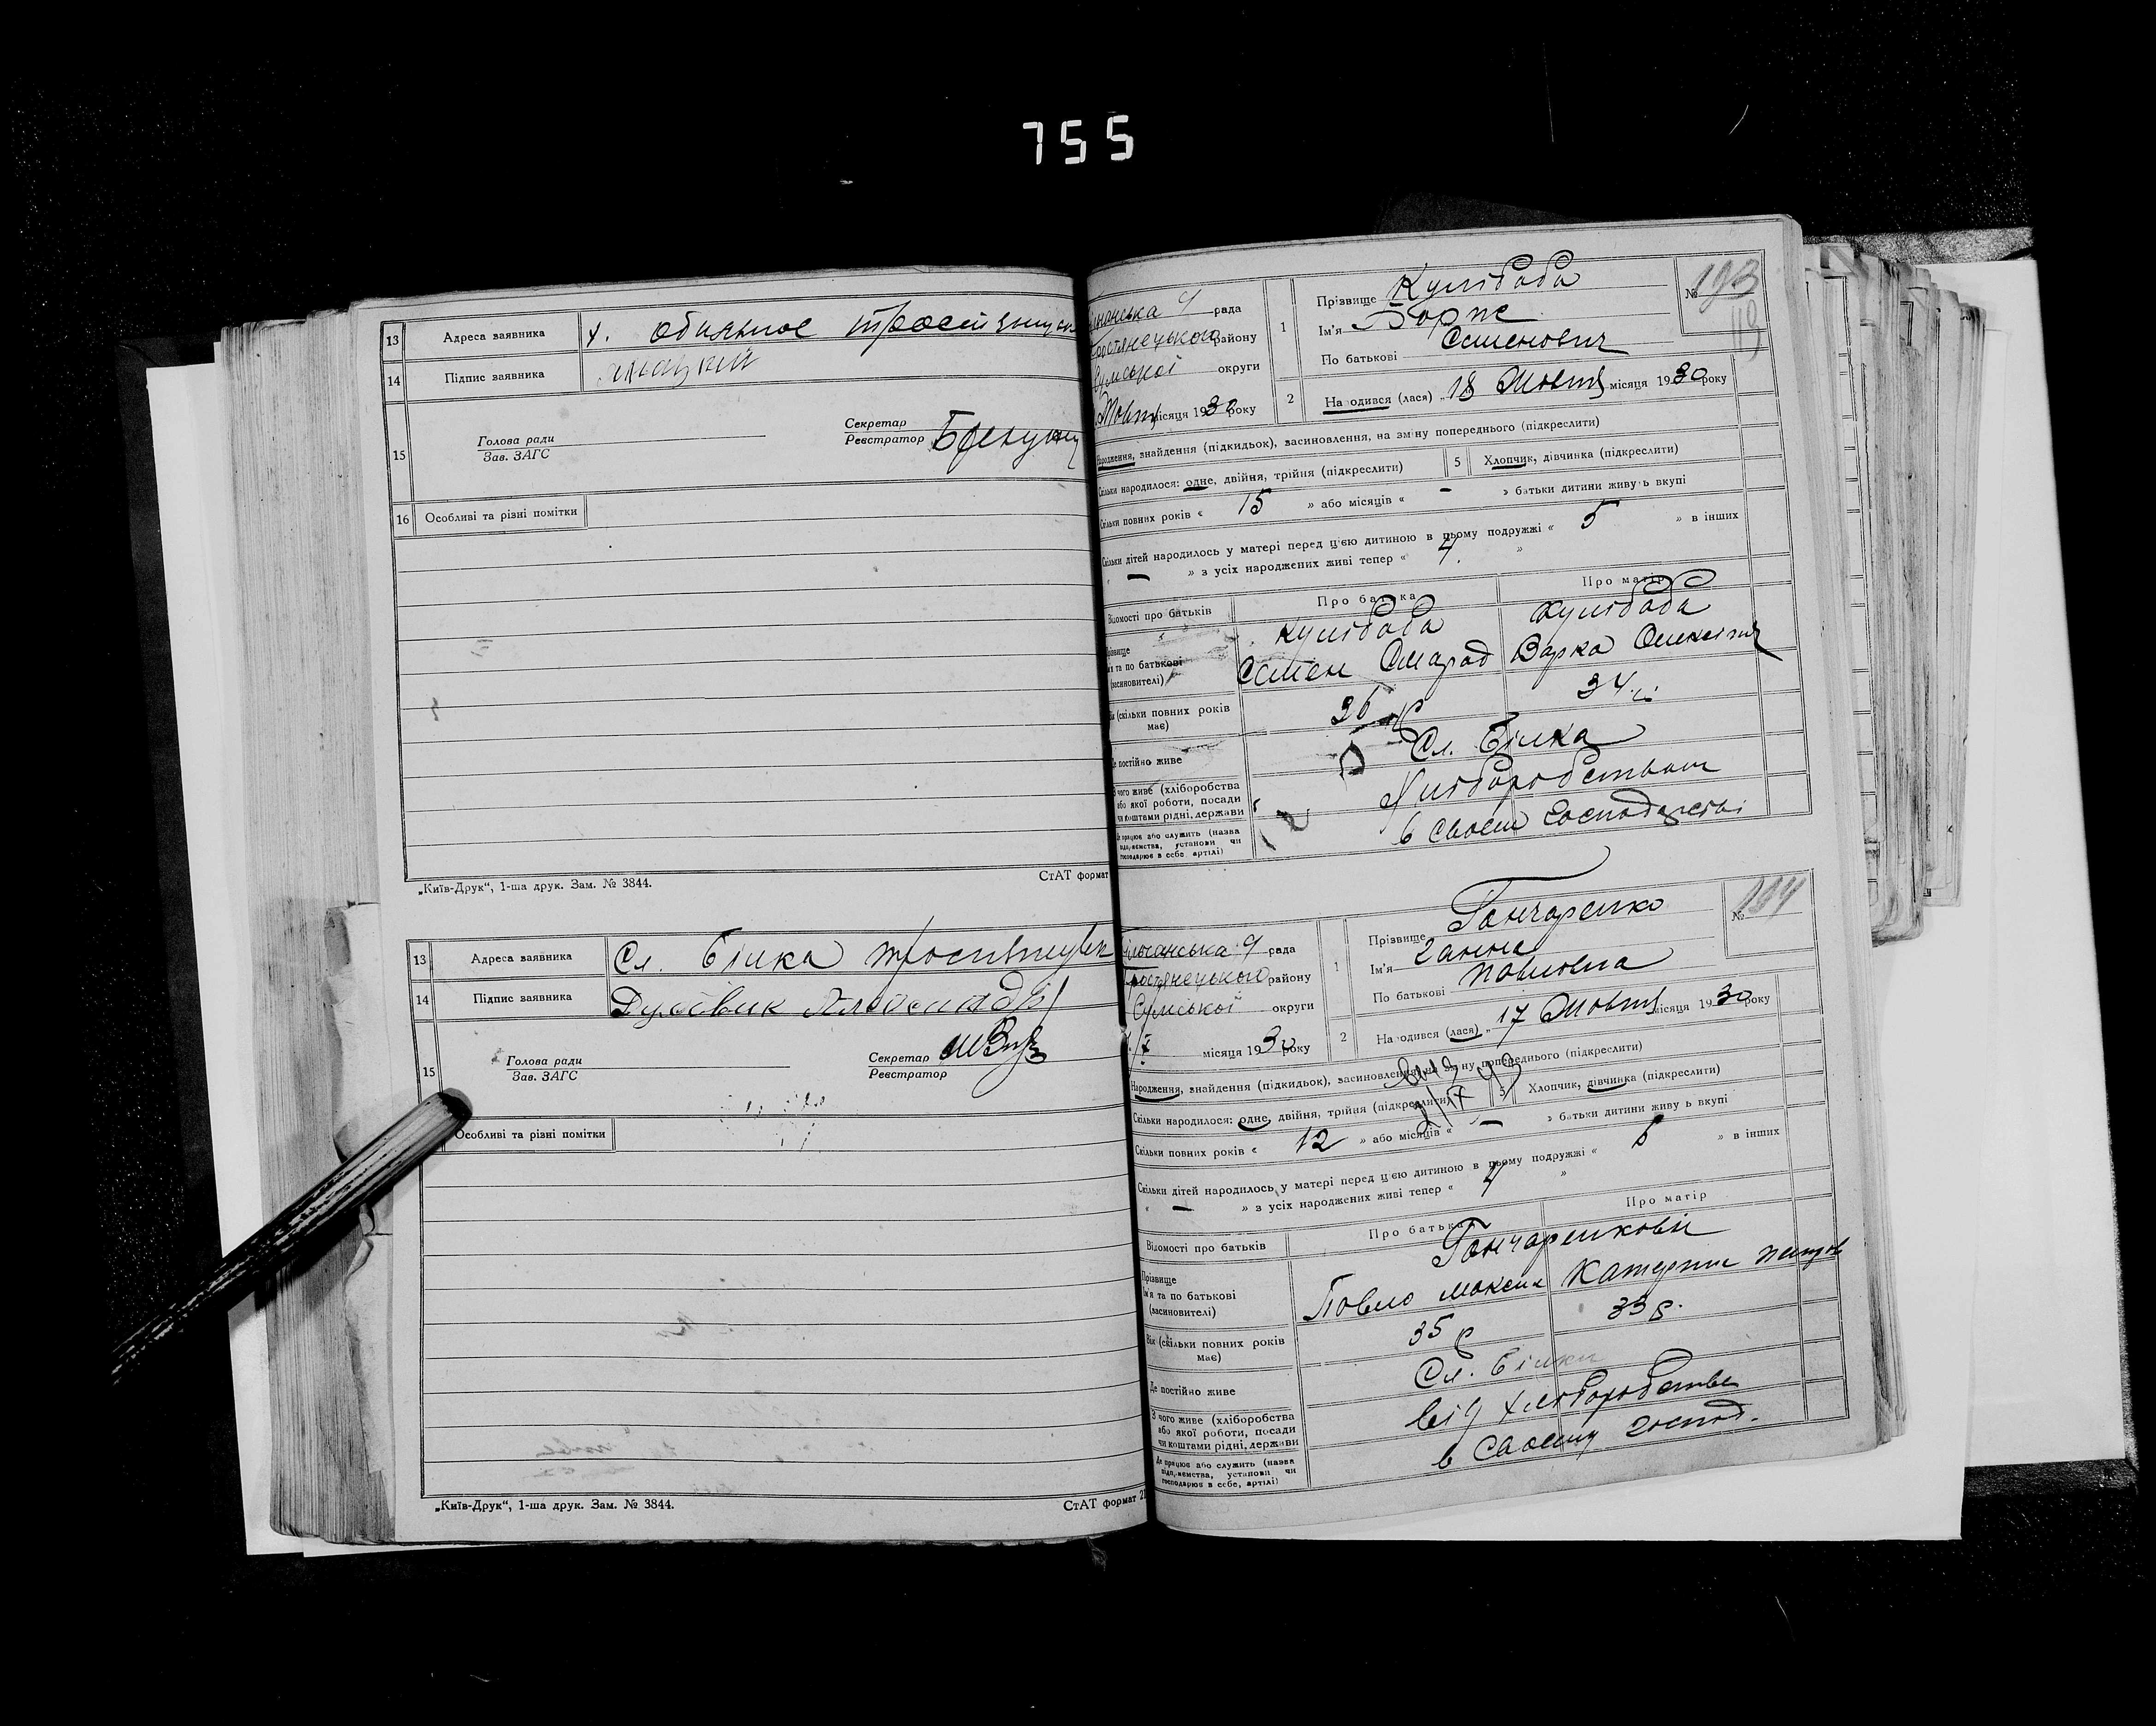 755
13 Адреса заявника х. Обильное
14 Підпис заявника
15 Голова ради
Зав. ЗАГС
Секретар
Реєстратор
16 Особливі та різні помітки
„Київ-Друк“, 1-ша друк. Зам. № 3844.
СтАТ формат
13 Адреса заявника Сл. Білка
14 Підпис заявника
15 Голова ради
Зав. ЗАГС
Секретар
Реєстратор
Особливі та різні помітки
„Київ-Друк“, 1-ша друк. Зам. № 3844.
СтАТ формат
рада
району
Сумської округи
місяця 1930 року
1 Прізвище Кулібаба
Ім'я
По батькові Семенович
№ 193
2 Народився (лася) „18 Жовтн місяця 1930 року
Народження, знайдення (підкидьок), засиновлення, на зміну попереднього (підкреслити)
Скільки народилося: одне, двійня, трійня (підкреслити) 5 Хлопчик, дівчинка (підкреслити)
Скільки повних років « 15 » або місяців « — » батьки дитини живуть вкупі
Скільки дітей народилось у матері перед цією дитиною в цьому подружжі « 5 » в інших
« — » з усіх народжених живі тепер « 4 »
Відомості про батьків Про батька Про матір
Прізвище Кулібаба Кулібаба
Ім'я та по батькові Семен Варка
(засиновителі)
Вік (скільки повних років має) 36 34
Де постійно живе Сл. Білка
З чого живе (хліборобства
або якої роботи, посади
чи коштами рідні, держави
Хліборобством
Де працює або служить (назва
підприємства, установи чи
господарює в себе, артілі)
в своєм господарстві
рада
Тростянецького району
Сумської округи
місяця 1930 року
1 Прізвище Гончаренко
Ім'я Ганна
По батькові Павловна
№ 194
2 Народився (лася) „17 Жовтн місяця 1930 року
Народження, знайдення (підкидьок), засиновлення, на зміну попереднього (підкреслити)
Скільки народилося: одне, двійня, трійня (підкреслити) 5 Хлопчик, дівчинка (підкреслити)
Скільки повних років « 12 » або місяців « — » батьки дитини живуть вкупі
Скільки дітей народилось у матері перед цією дитиною в цьому подружжі « » в інших
« — » з усіх народжених живі тепер « 4 »
Відомості про батьків Про батька Про матір
Прізвище
Ім'я та по батькові Павло Максим
(засиновителі)
Вік (скільки повних років має) 35 р 33 р.
Де постійно живе Сл. Білка
З чого живе (хліборобства
або якої роботи, посади
чи коштами рідні, держави
від хліборобства
Де працює або служить (назва
підприємства, установи чи
господарює в себе, артілі)
в своєму господ.